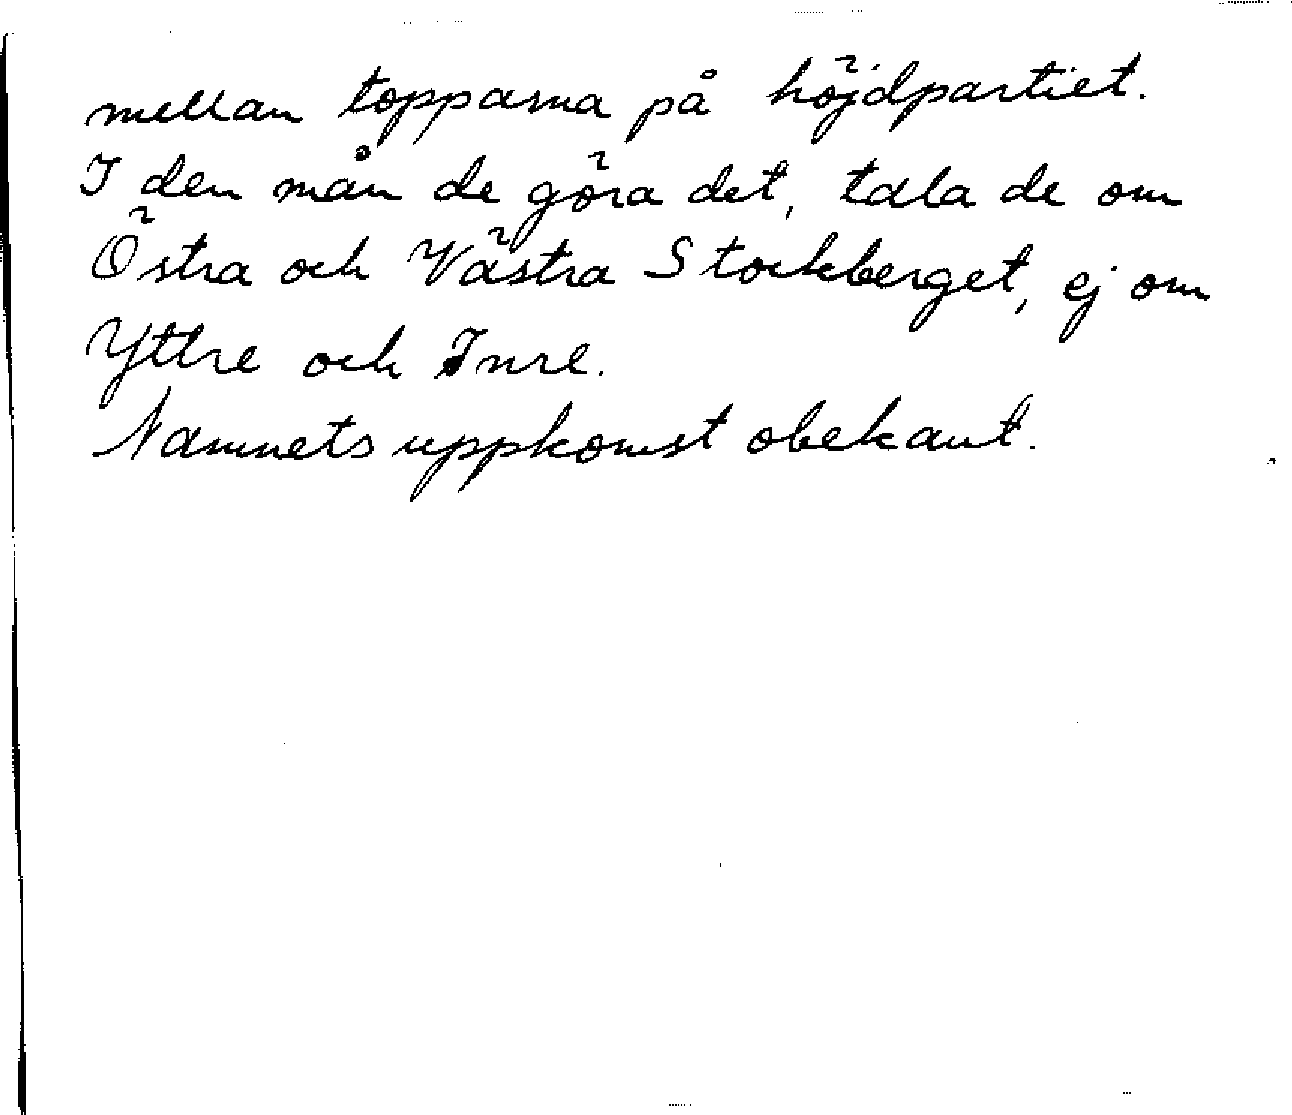 mellan topparna på höjdpartiet.
I den mån de göra det, tala de om
Östra och Västra Stockberget, ej om
Yttre och Inre.
Namnets uppkomst obekant.